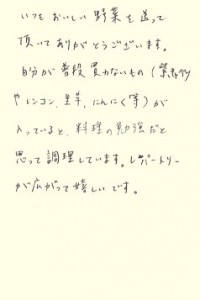 いつもおいしい野菜を送って
頂いてありがとうございます。
自分が普段買わないもの(
やレンコン、里芋、にんにく等)が
入っていると、料理の勉強だと
思って調理しています。レパートリー
が広がって嬉しいです。